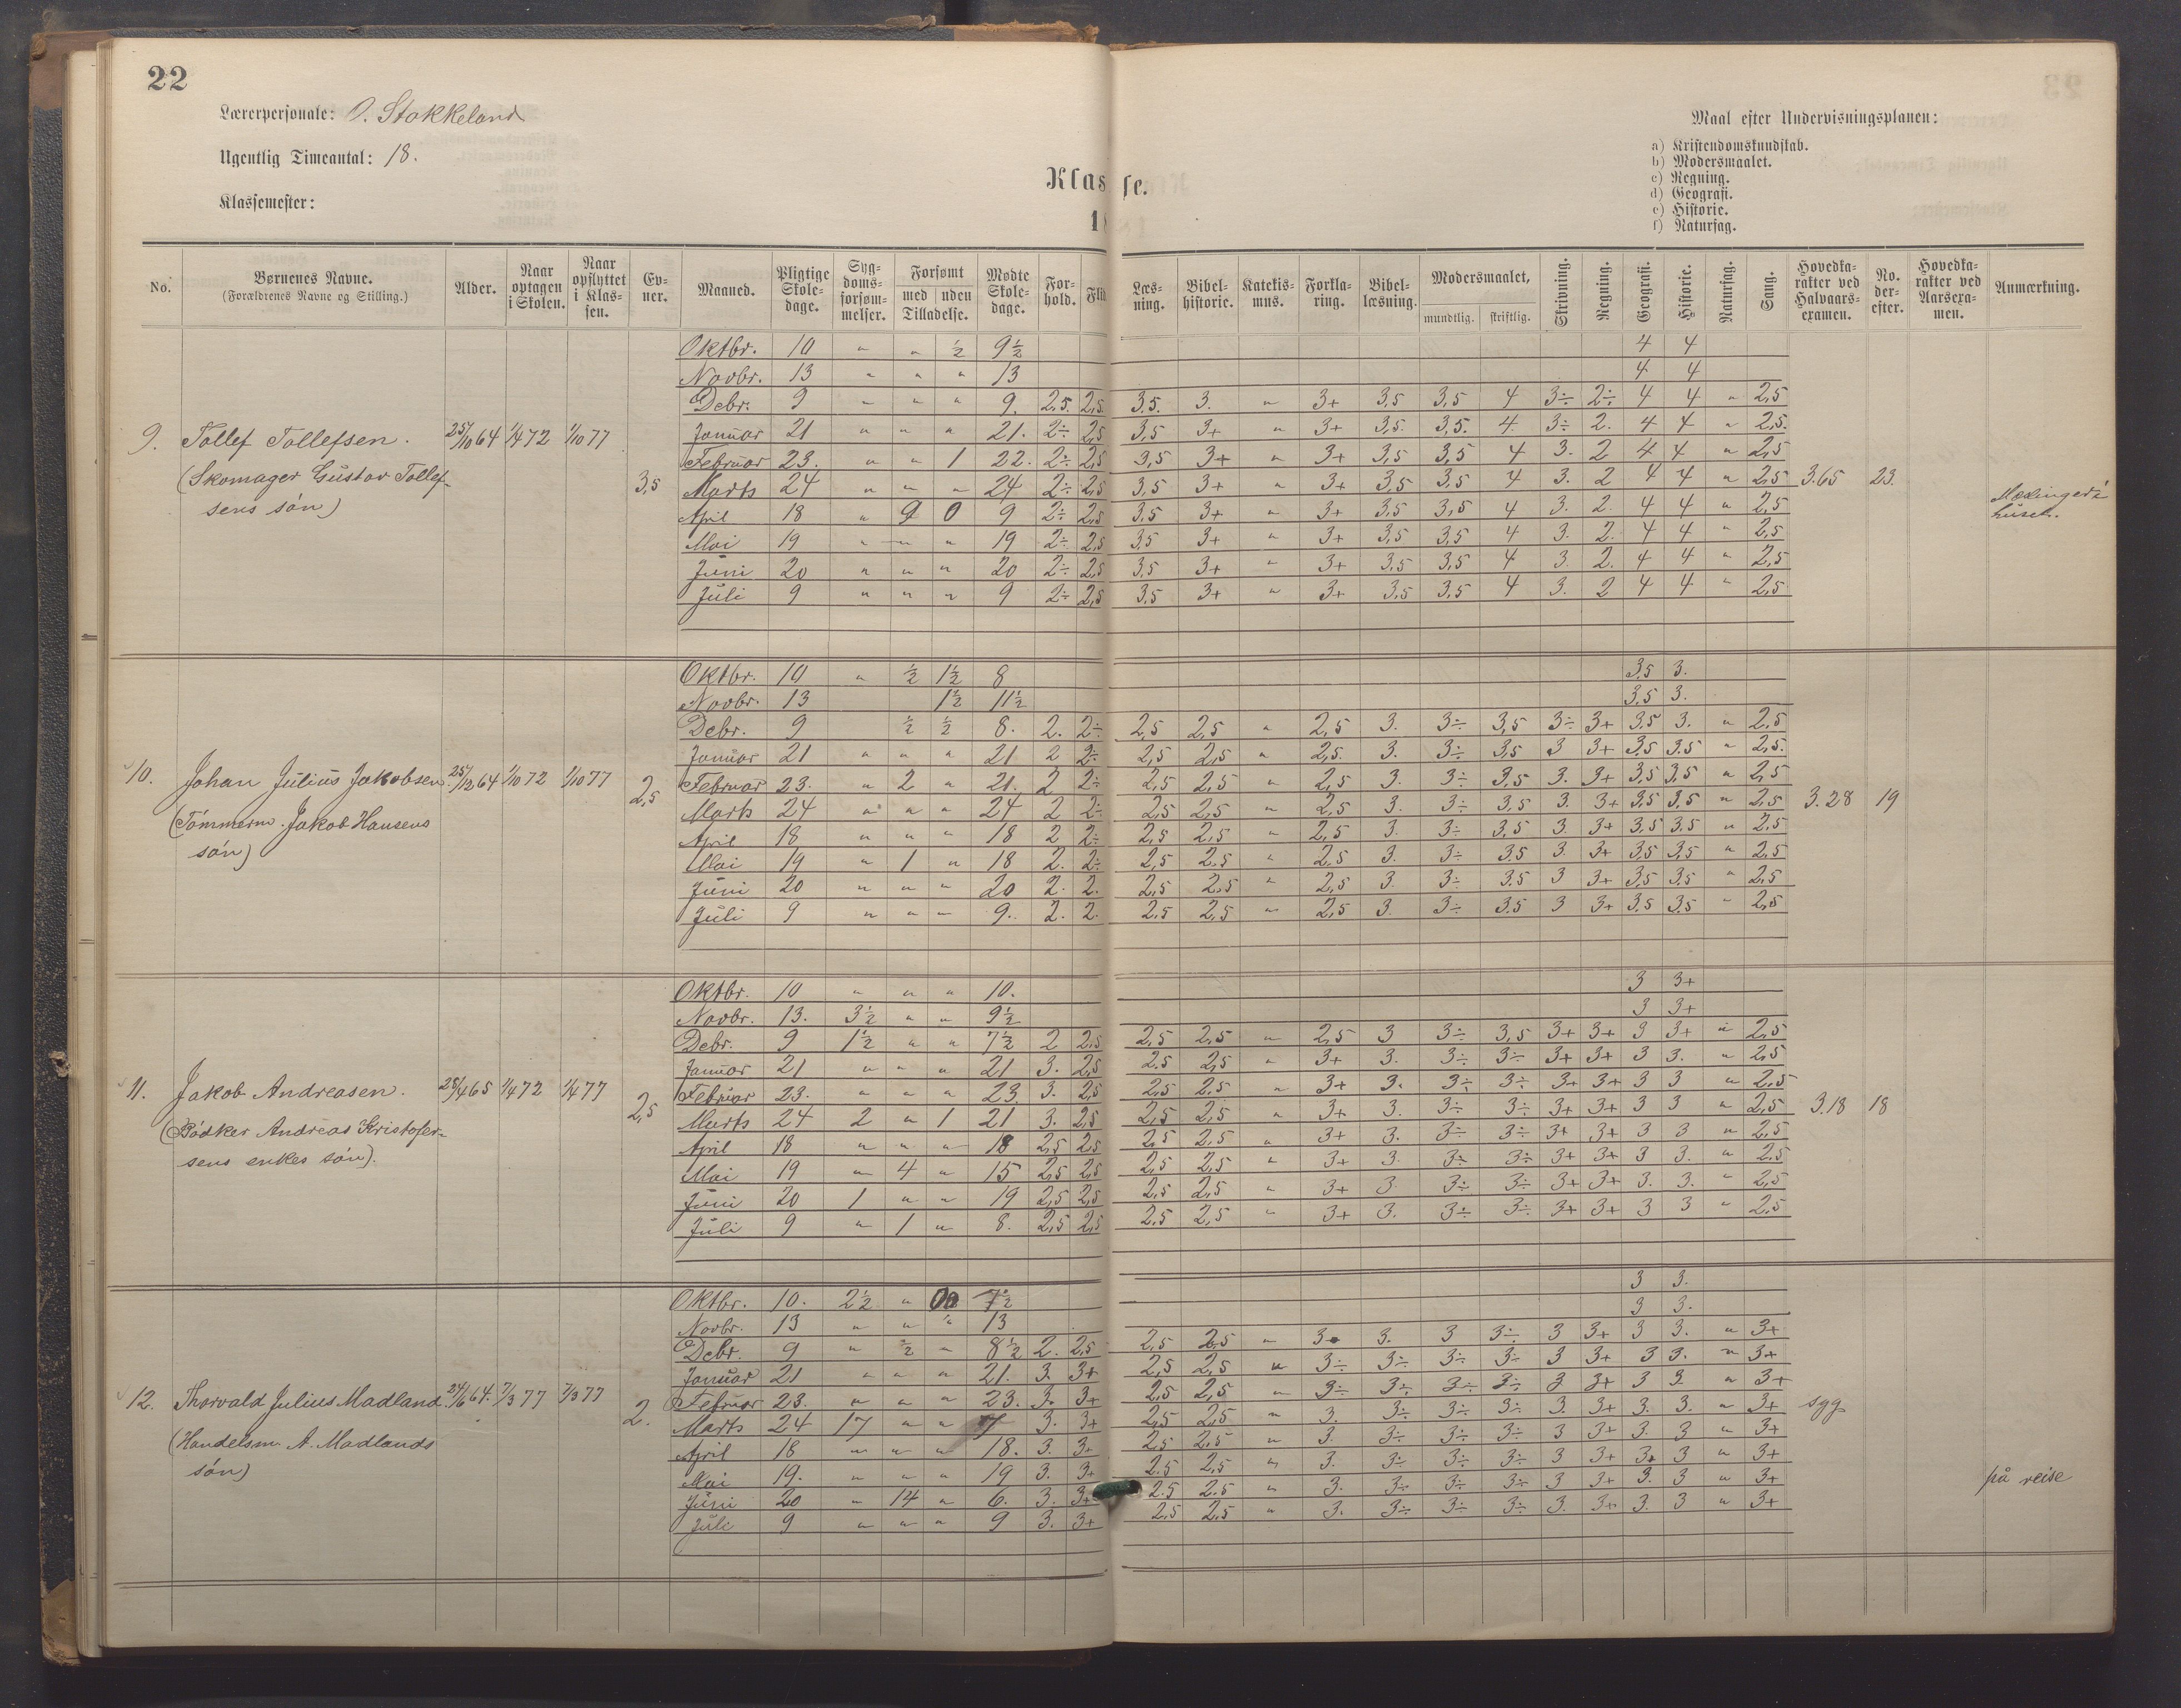 22
Lærerpersonale: O. Stokkeland
Ugentlig Timeantal: 18.
Klassemester:
Klasse.
18
Maal efter Undervisningsplanen:
a) Kristendomskundskab.
b) Modersmaalet.
c) Regning.
d) Geografi.
e) Historie.
f) Naturfag.
No. Børnenes Navne. (Forældrenes Navne og Stilling.) Alder. Naar optagen i Skolen. Naar opflyttet i Klassen. Evner. Maaned. Pligtige Skoledage. Sygdomsforsømmelser. Forsømt med uden Tilladelse. Mødte Skoledage. Forhold. Læsning. Bibelhistorie. Katekismus. Forklaring. Bibellæsning. Modersmaalet, mundtlig. skriftlig. Skrivning. Regning. Geografi. Historie. Naturfag. Sang. Hovedkarakter ved Halvaarsexamen. No. derefter. Hovedkarakter ved Aarsexamen. Anmærkning.
Oktbr. 10 " " ½ 9½ 4 4
Novbr. 13 " " " 13 4 4
Debr. 9 " " " 9. 2,5. 2,5. 3.5. 3. " 3+ 3,5 3,5 4 3÷ 2÷ 4 4 " 2,5
9. Tollef Tollefsen. 25/10 64 1/4 72 1/10 77 Januar 21 " " " 21. 2÷ 2,5 3,5 3+ " 3+ 3,5. 3,5. 4. 3÷ 2. 4 4 " 2,5.
Februar 23. " " 1 22. 2÷ 2,5 3,5 3+ " 3+ 3,5 3,5 4 3. 2 4 4 " 2,5
(Skomager Gustav Tollef- 3,5 Marts 24 " " " 24 2÷ 2,5 3,5 3+ " 3+ 3,5 3,5 4 3. 2 4 4 " 2,5 3.65 23.
sens søn) April 18 " 9 0 9 2÷ 2,5 3,5 3+ " 3+ 3,5 3,5 4 3. 2. 4 4 " 2,5
Mai 19 " " " 19 2÷ 2,5 3,5 3+ " 3+ 3,5 3,5 4 3. 2. 4 4 " 2,5
Juni 20 " " " 20 2÷ 2,5 3,5 3+ " 3+ 3,5 3,5 4 3. 2. 4 4 " 2,5
Juli 9 " " " 9 2÷ 2,5 3,5 3+ " 3+ 3,5 3,5 4 3. 2 4 4 " 2,5
Oktbr. 10 " ½ 1½ 8 3,5 3.
Novbr. 13 1½ 11½ 3,5 3.
Debr. 9 ½ ½ 8. 2. 2÷ 2,5 2,5 " 2,5 3. 3÷ 3,5 3÷ 3+ 3,5 3. " 2,5
Januar 21 " " " 21 2 2÷ 2,5 2,5 " 2,5. 3. 3÷ 3,5 3 3+ 3,5 3.5 " 2,5.
10. Johan Julius Jakobsen 25/12 64 1/10 72 1/10 77 2,5 Februar 23. " 2 " 21. 2 2÷ 2,5 2,5 " 2,5 3. 3÷ 3,5 3. 3+ 3,5 3,5 " 2,5
(Tømmerm. Jakob Hansens Marts 24 " " " 24 2 2÷ 2,5 2,5 " 2,5 3. 3÷ 3,5 3. 3+ 3,5 3,5 " 2,5 3.28 19
søn) April 18 " " " 18 2 2÷ 2,5 2,5 " 2,5 3. 3÷ 3,5 3. 3+ 3,5 3.5 " 2,5
Mai 19 " 1 " 18 2. 2÷ 2,5 2.5 " 2,5 3. 3÷ 3.5 3. 3+ 3,5 3,5 " 2,5
Juni 20 " " " 20 2. 2. 2,5 2,5 " 2,5 3. 3÷ 3.5 3 3+ 3,5 3,5 " 2,5
Juli 9 " " " 9. 2. 2. 2,5 2,5 " 2,5 3. 3÷ 3.5 3 3+ 3,5 3,5 " 2,5
Oktbr. 10 " " " 10. 3 3+
Novbr. 13. 3½ " " 9½ 3 3+
Debr. 9 1½ " " 7½ 2 2,5 2,5 2,5 " 2,5 3 3÷ 3,5 3+ 3+ 3 3+ " 2,5
Januar 21 " " " 21 3. 2,5 2.5 2,5 " 3+ 3. 3÷ 3÷ 3+ 3+ 3 3. " 2,5
11. Jakob Andreasen. 28/4 65 1/4 72 1/4 77 2,5 Februar 23. " " " 23 3. 2,5 2,5 2.5 " 3+ 3. 3÷ 3÷ 3+ 3+ 3 3 " 2,5
(Bødker Andreas Kristofer- Marts 24 2 " 1 21 3. 2,5 2,5 2,5 " 3+ 3. 3÷ 3÷ 3+ 3+ 3 3 " 2,5 3.18 18
sens enkes søn). April 18 " " " 18 2,5 2,5 2,5 2,5 " 3+ 3. 3÷ 3÷ 3+ 3+ 3 3 " 2,5
Mai 19 " 4 " 15 2,5 2,5 2,5 2,5 " 3+ 3. 3÷ 3÷ 3+ 3+ 3 3. " 2,5
Juni 20 1 " " 19 2,5 2,5 2,5 2,5 " 3+ 3 3÷ 3÷ 3+ 3+ 3. 3. " 2,5
Juli 9 " 1 " 8. 2,5 2,5 2,5 2,5 " 3+ 3. 3÷ 3÷ 3+ 3+ 3 3 " 2,5
Oktbr. 10. 2½ " 7½ 3 3.
Novbr. 13 " " " 13 3 3.
Debr. 9 " ½ " 8½ 2. 2,5 2,5 2,5 " 3. 3. 3 3÷ 3 3+ 3 3. " 3+
Januar 21 " " " 21. 3. 3+ 2,5 2,5 " 3÷ 3÷ 3÷ 3÷ 3 3+ 3 3. " 3+
12. Thorvald Julius Madland. 24/6 64. 7/3 77 7/3 77 2. Februar 23. " " " 23. 3. 3+ 2,5 2,5 " 3÷ 3÷ 3÷ 3÷ 3 3+ 3 3 " 3+
(Handelsm. A. Madlands Marts 24 17 " " 7 3. 3+ 2,5 2,5 " 3. 3÷ 3÷ 3÷ 3. 3+ 3. 3. " 3+ syg
søn) April 18 " " " 18. 3. 3+ 2,5 2,5 " 3. 3÷ 3÷ 3÷ 3 3+ 3. 3 " 3+
Mai 19. " " " 19 3. 3+ 2.5 2,5 " 3. 3÷ 3÷ 3÷ 3 3+ 3+ 3 " 3+
Juni 20 " 14 " 6. 3. 3+ 2.5 2.5 " 3. 3÷ 3÷ 3÷ 3 3+ 3. 3 " 3+ på reise
Juli 9 " " " 9 3. 3+ 2,5 2,5 " 3. 3÷ 3÷ 3÷ 3. 3+ 3. 3 " 3+